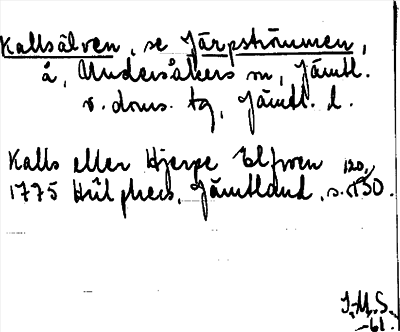 Kallsälven, se Järpströmmen,
å, Undersåkers sn, Jämtl.
v. doms. tg, Jämtl. l.
Kalls eller Hjerpe Elfven
120,
1775 Hülphers, Jämtland, s. 130.
J.M.S.
-61.